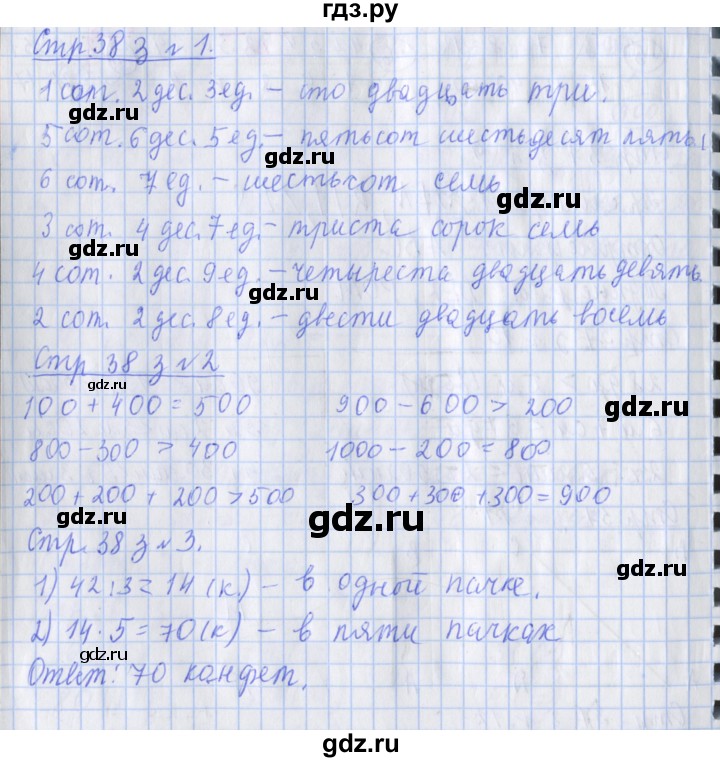 гдз.ру
Стр 38 з № 1.
1 сот. 2 дес. 3 ед. – сто двадцать три.
gdz.ru
gdz.ru
5 сот. 6 дес. 5 ед. – пятьсот шестьдесят пять
gdz.ru
6 сот. 7 ед. – шестьсот семь
gdz.ru
3 сот. 4 дес. 7 ед. – триста сорок семь
gdz.ru
4 сот. 2 дес. 9 ед. – четыреста двадцать девять
gdz.ru
2 сот. 2 дес. 8 ед. – двести двадцать восемь
Стр 38 з № 2
gdz.ru
100 + 400 = 500 900 – 600 > 200
gdz.ru
800 – 300 > 400 1000 – 200 = 800
200 + 200 + 200 > 500 300 + 300 + 300 = 900
gdz.ru
gdz.ru
Стр. 38 з № 3.
1) 42 : 3 = 14 (к.) – в одной пачке.
gdz.ru
2) 14 · 5 = 70 (к) – в пяти пачках
gdz.ru
Ответ: 70 конфет.
gdz.ru
gdz.ru